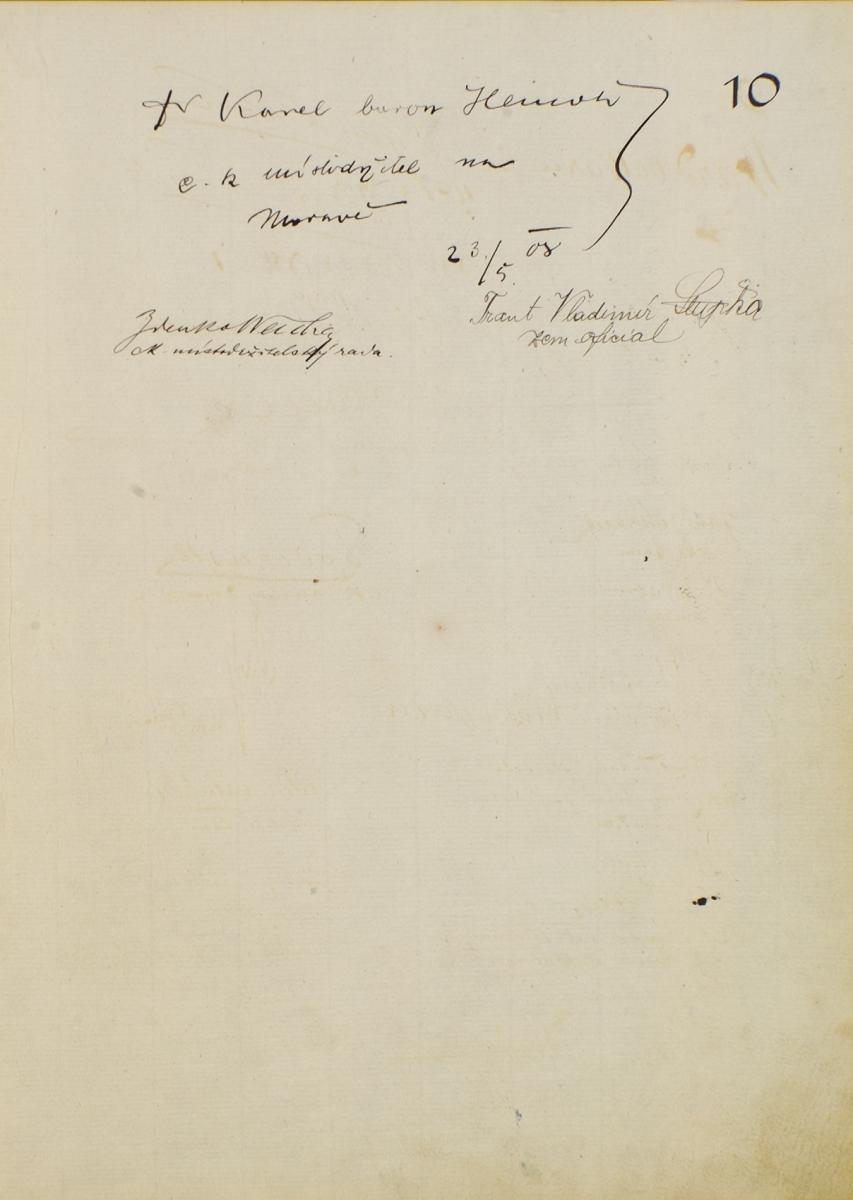 10
Dr Karel baron Heinold
c. k místodržitel na
Moravě
23/5 08
Frant Vladimír
zem oficial
Zdenko
ck místodržitelský rada.